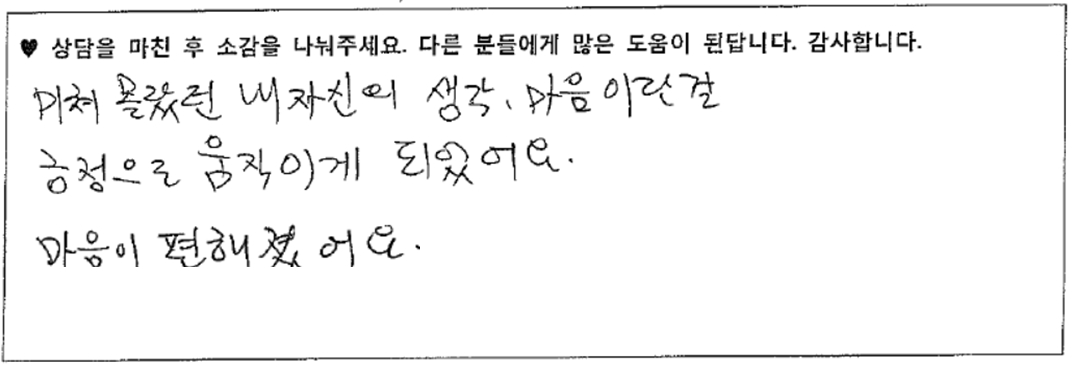 ♥ 상담을 마친 후 소감을 나눠주세요. 다른 분들에게 많은 도움이 된답니다. 감사합니다.
미쳐 몰랐던 내자신의 생각, 마음이란걸
긍정으로 움직이게 되었어요.
마음이 편해졌어요.